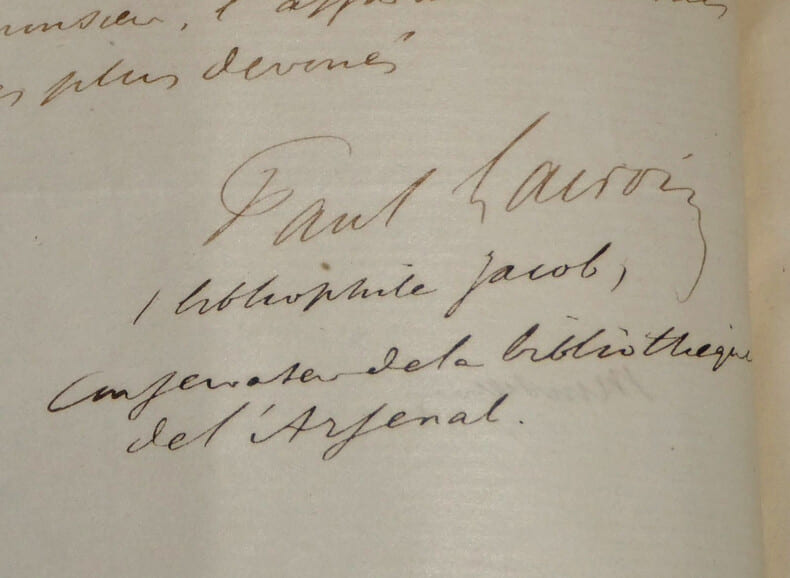 monsieur, l'
plus dévoués
Paul Lacroix
(bibliophile Jacob)
Conservateur de la bibliothèque
de l'Arsenal.